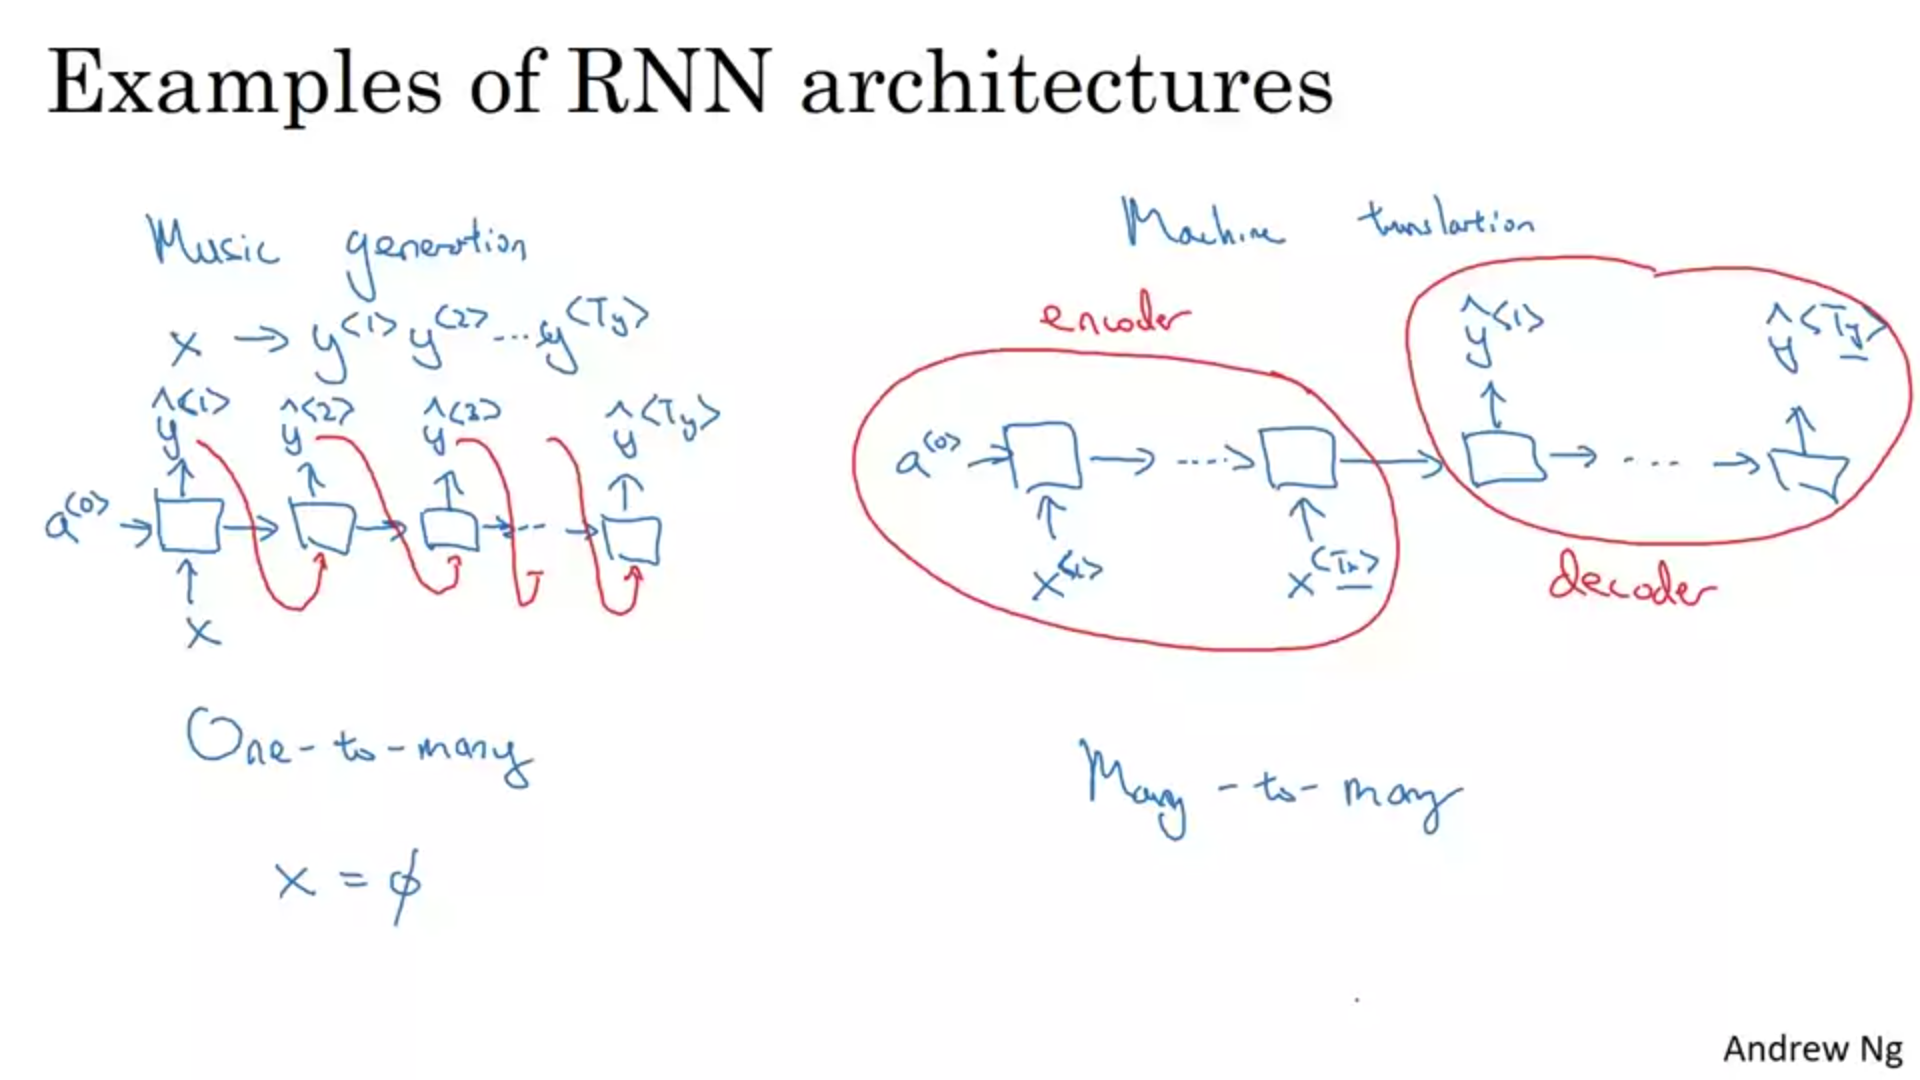 Examples of RNN architectures
Music generation
x → y<1> y<2> ... y<Ty>
ŷ<1> ŷ<2> ŷ<3> ŷ<Ty>
a<0>
x
One-to-many
x = ϕ
Machine translation
encoder
ŷ<1> ŷ<Ty>
a<0> → → ....> → → .... →
x<1> x<Tx>
decoder
Many-to-many
Andrew Ng